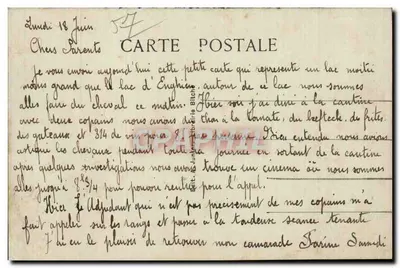 Lundi 18 Juin
57
Chers Parents
CARTE POSTALE
Je vous envoi aujourd'hui cette petite carte qui represente un lac moitié
moins grand que le lac d'Enghien; autour de ce lac nous sommes
alles faire du cheval ce matin. Hier soir j'ai diné à la cantine
avec deux copains nous avions du thon à la tomate, du bifteck, des frites,
des gateaux et 3/4 de vin pour
Bien entendu nous avions
les chevaux pendant toute la journée en sortant de la cantine
après quelques investigations nous avons trouvé un cinema où nous sommes
alles jusqu'à 8h3/4 pour pouvoir rentrer pour l'appel.
Hier le Adjudant qui n'est pas precisement de mes copains m'a
fait appeler sur les rangs et passer à la tondeuse seance tenante
J'ai eu le plaisir de retrouver mon camarade Farine Samedi